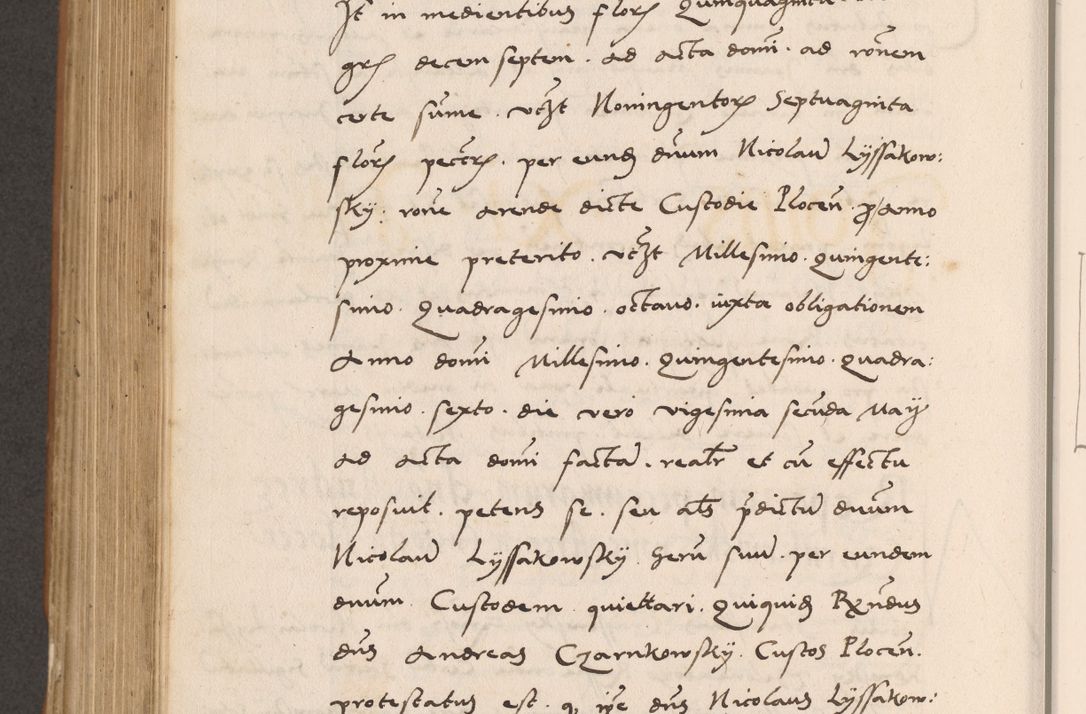 It in medientibus flor) Quinquaginta
gr) decem septem . ad acta domi . ad ronem
certe sume . vtzt Noningentor) Septuaginta
flor) pector) . per eund) dnum Nicolau Lyssakow:
sky . rone arende dicte Custodie Plocen . p Anno
proxime preterito . vtzt Millesimo . Quingente:
simo . Quadragesimo . octauo . iuxta obligationem
Anno domi Millesimo . Quingentesimo . Quadra:
gesimo . sexto . die vero vigesima secuda Maÿ
ad acta domi facta . realr et cu effectu
reposuit . petens se . seu als pdictu dnum
Nicolau Lyssakowsky heru suu . per eundem
dnum Custodem quiettari . Quiquid) Rxndus
dns Andreas Czarnkowsky . Custos Plocen .
protestatus est . q, ipe dns Nicolaus Lyssakow: